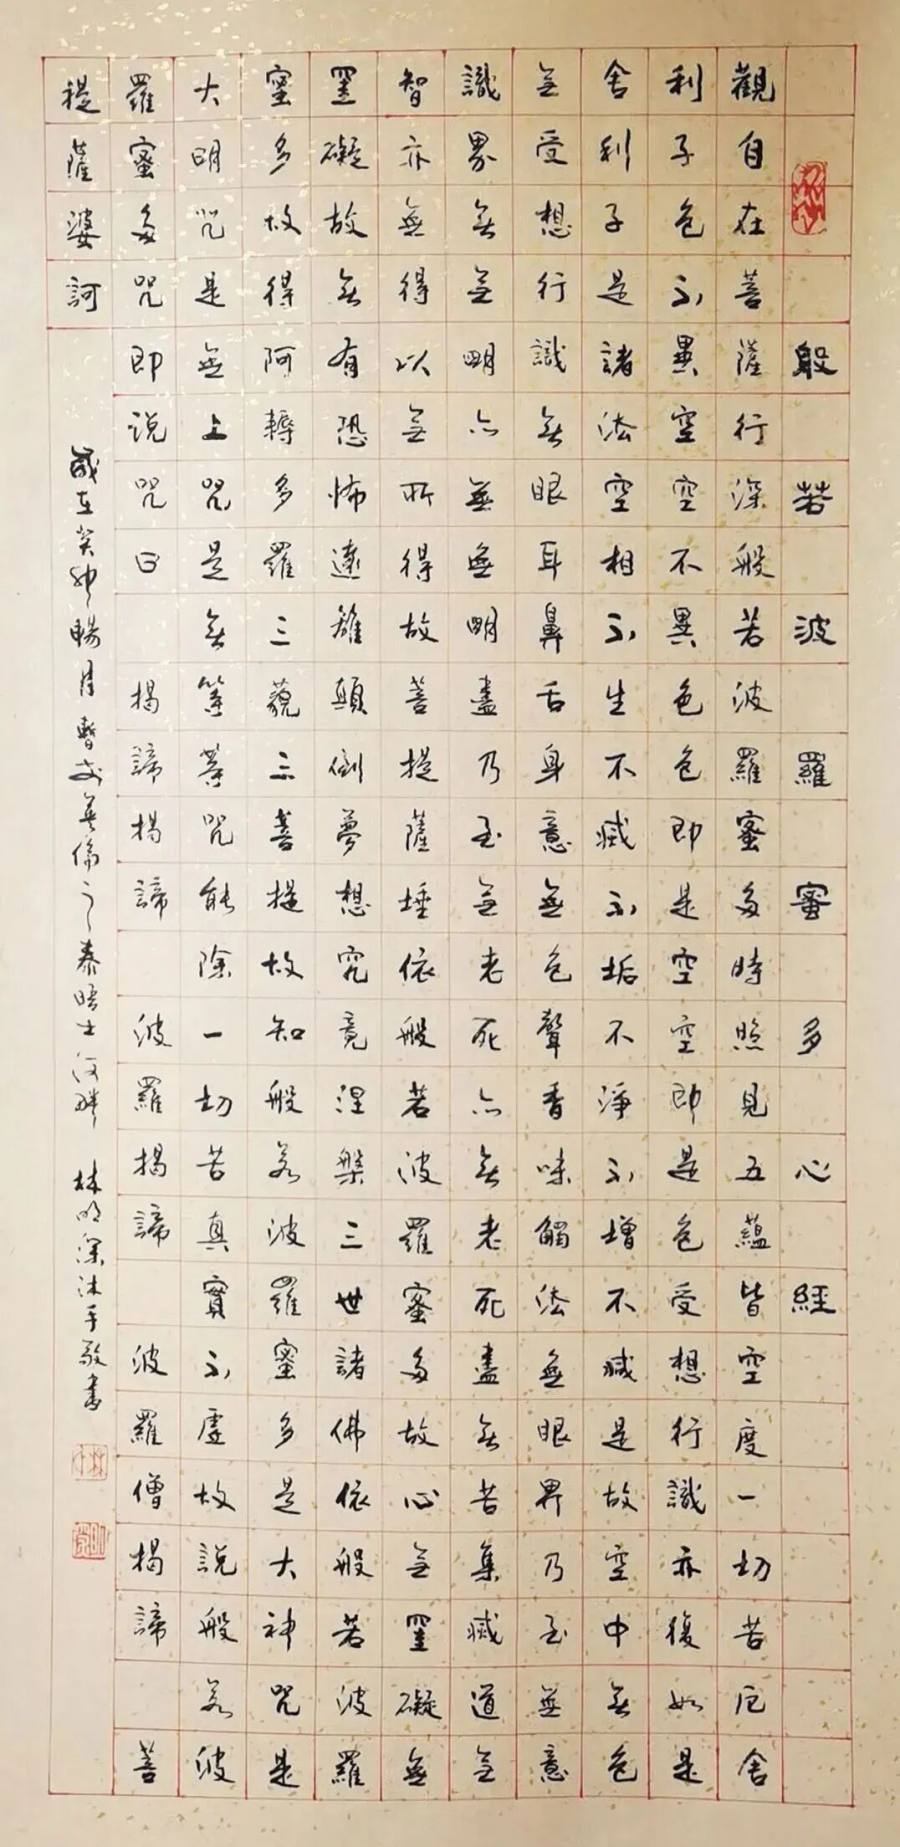 般若波羅蜜多心經
觀自在菩薩行深般若波羅蜜多時照見五蘊皆空度一切苦厄舍
利子色不異空空不異色色即是空空即是色受想行識亦復如是
舍利子是諸法空相不生不滅不垢不淨不增不減是故空中無色
無受想行識無眼耳鼻舌身意無色聲香味觸法無眼界乃至無意
識界無無明亦無無明盡乃至無老死亦無老死盡無苦集滅道無
智亦無得以無所得故菩提薩埵依般若波羅蜜多故心無罣礙無
罣礙故無有恐怖遠離顛倒夢想究竟涅槃三世諸佛依般若波羅
蜜多故得阿耨多羅三藐三菩提故知般若波羅蜜多是大神咒是
大明咒是無上咒是無等等咒能除一切苦真實不虛故說般若波
羅蜜多咒即說咒曰 揭諦揭諦 波羅揭諦 波羅僧揭諦 菩
提薩婆訶
歲在癸卯暢月暫英倫之泰晤士河畔 林明深沐手敬書